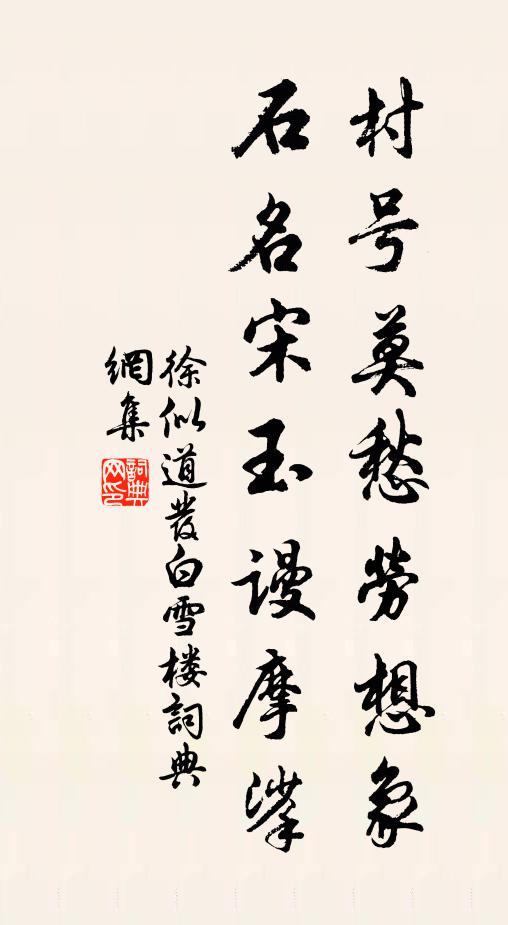 村号莫愁劳想象
石名宋玉谩摩挲
徐似道发白雪楼詞典
網集
詞典
网印